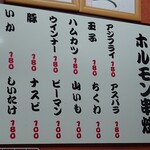 ホルモン串焼
アスパラ
180
ちくわ
180
山いも
180
ピーマン
200
ナスビ
180
しいたけ
180
アジフライ
180
玉子
180
ハムカツ
180
ウインナー
180
豚
180
いか
180